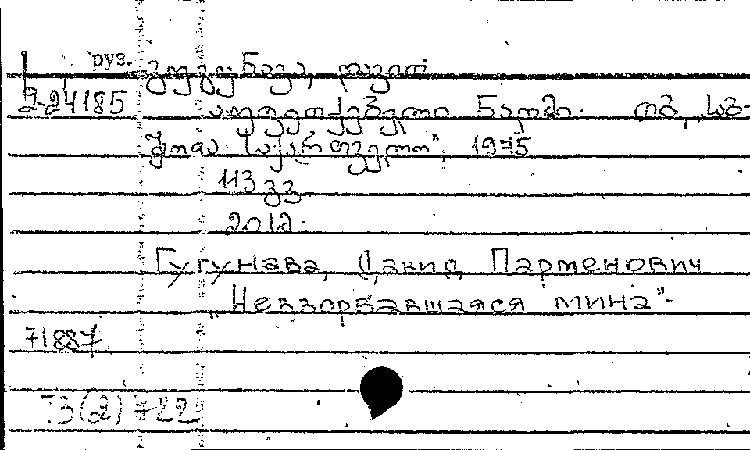 груз. გუგუნავა, დავით
2-24185 აუფეთქებელი ნაღმი. თბ., საბ-
ჭოთა საქართველო", 1975
113 გვ.
2012.
Гугунава, Давид Парменович
"Невзорвавшаяся мина".
71887
3(2)722